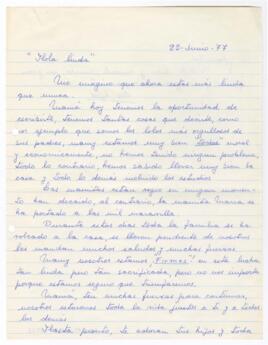 22-Junio-77
"Hola linda"
Me imagino que ahora estás más linda
que nunca.
Mamá hoy tenemos la oportunidad de
escribirte, tenemos tantas cosas que decirte, como
por ejemplo que somos los lolos más orgullosos de
sus padres, mamy estamos muy bien todos moral
y económicamente, no hemos tenido ningún problema,
todo lo contrario, hemos sabido llevar muy bien la
casa y todo lo demás incluido los estudios
Las mamitas están
han decaído, al contrario, la mamita María se
ha portado a las mil maravilla
Durante estos días toda la familia se ha
volcado a la casa, se llevan pendiente de nosotros
les mandan muchos saludos y muchas fuerzas.
Mamy nosotros estamos "Firmes" en esta lucha
tan linda pero tan sacrificada, pero no nos importa
porque estamos seguro que triunfaremos.
Mamá, ten muchas fuerzas para continuar,
nosotros estaremos toda la vida junto a ti y a todos
los demás.
Hasta pronto, te adoran tus hijos y toda